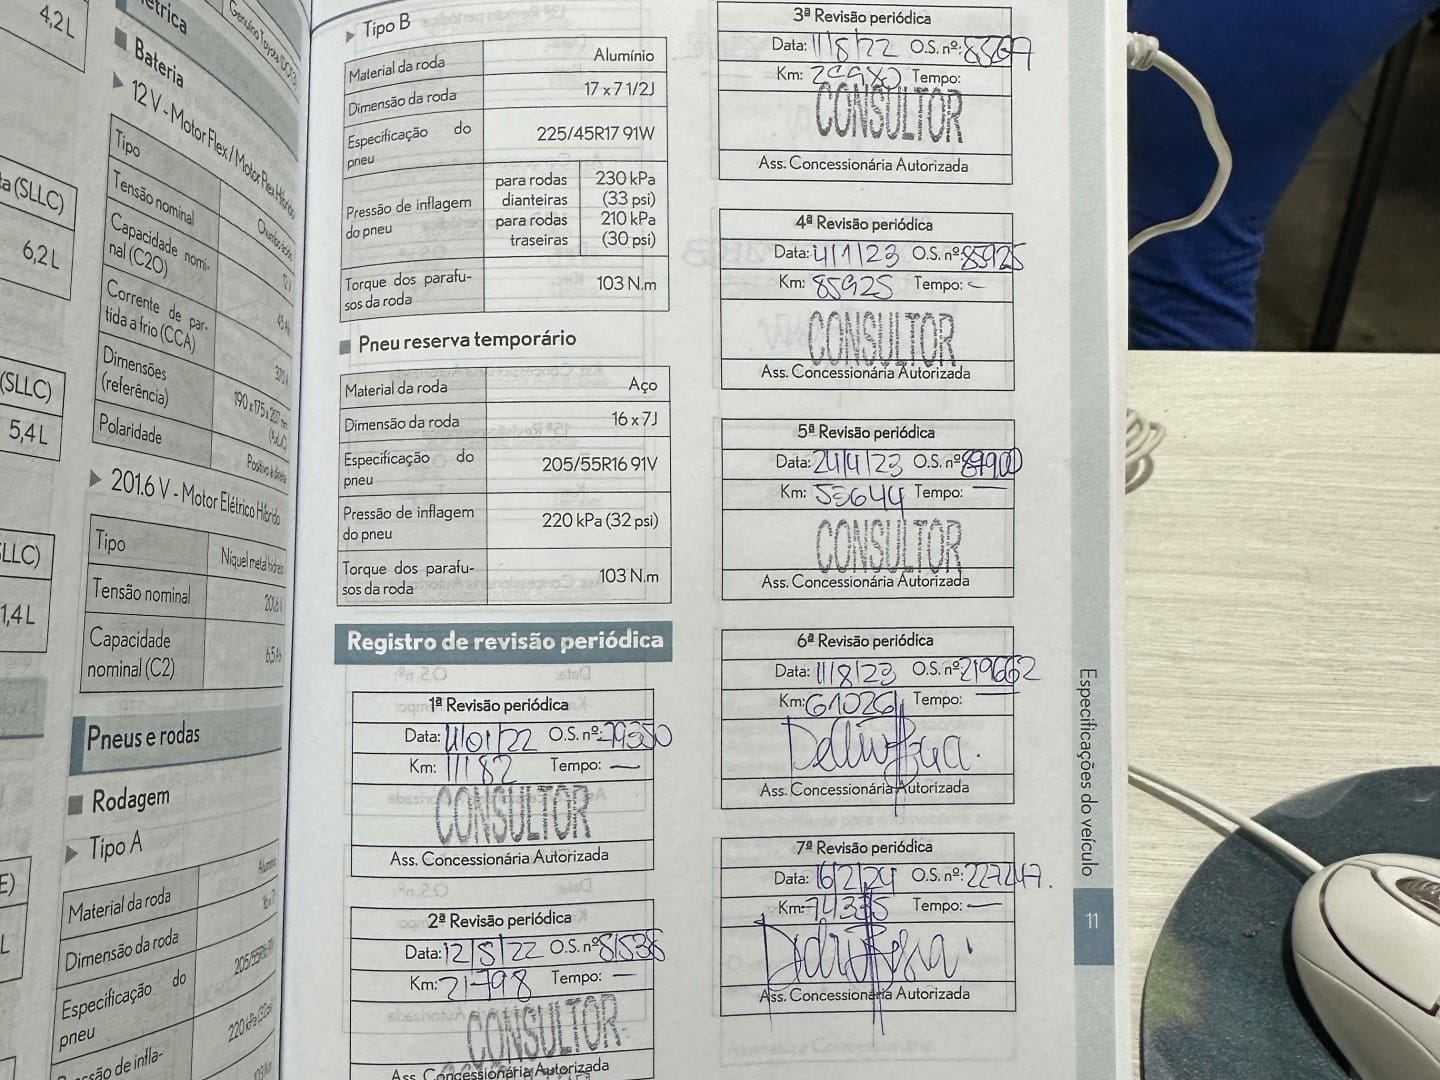 4,2 L
ta (SLLC)
6,2 L
(SLLC)
5,4 L
LLC)
1,4 L
E)
L
étrica
Genuíno Toyota
■ Bateria
▶ 12 V - Motor Flex / Motor Flex Híbrido
Tipo Chumbo ácido
Tensão nominal 12 V
Capacidade nomi-
nal (C20) 45 Ah
Corrente de par-
tida a frio (CCA)
Dimensões
(referência) 190 x 175 x
Polaridade Positivo à direita
▶ 201.6 V - Motor Elétrico Híbrido
Tipo Níquel metal hidreto
Tensão nominal 201.6 V
Capacidade
nominal (C2) 6,5 Ah
Pneus e rodas
■ Rodagem
▶ Tipo A
Material da roda Alumínio
Dimensão da roda
Especificação do
pneu 205/55R16 91V
ssão de infla- 220 kPa (32 psi)
103 N.m
▶ Tipo B
Material da roda Alumínio
Dimensão da roda 17 x 7 1/2J
Especificação do
pneu 225/45R17 91W
Pressão de inflagem
do pneu
para rodas
dianteiras 230 kPa
(33 psi)
para rodas
traseiras 210 kPa
(30 psi)
Torque dos parafu-
sos da roda 103 N.m
■ Pneu reserva temporário
Material da roda Aço
Dimensão da roda 16 x 7J
Especificação do
pneu 205/55R16 91V
Pressão de inflagem
do pneu 220 kPa (32 psi)
Torque dos parafu-
sos da roda 103 N.m
Registro de revisão periódica
1ª Revisão periódica
Data: 11/01/22 O.S. nº: 79350
Km: 11182 Tempo: —
CONSULTOR
Ass. Concessionária Autorizada
2ª Revisão periódica
Data: 12/5/22 O.S. nº: 81538
Km: 21798 Tempo: —
CONSULTOR
Ass. Concessionária Autorizada
3ª Revisão periódica
Data: 11/8/22 O.S. nº:
Km: 29980 Tempo:
CONSULTOR
Ass. Concessionária Autorizada
4ª Revisão periódica
Data: 4/1/23 O.S. nº: 85925
Km: 85925 Tempo: -
CONSULTOR
Ass. Concessionária Autorizada
5ª Revisão periódica
Data: 24/4/23 O.S. nº: 87900
Km: 53644 Tempo: —
CONSULTOR
Ass. Concessionária Autorizada
6ª Revisão periódica
Data: 11/8/23 O.S. nº: 219662
Km: 61026 Tempo: —
Ass. Concessionária Autorizada
7ª Revisão periódica
Data: 16/2/24 O.S. nº: 227247.
Km: 74335 Tempo: —
Ass. Concessionária Autorizada
Especificações do veículo
11